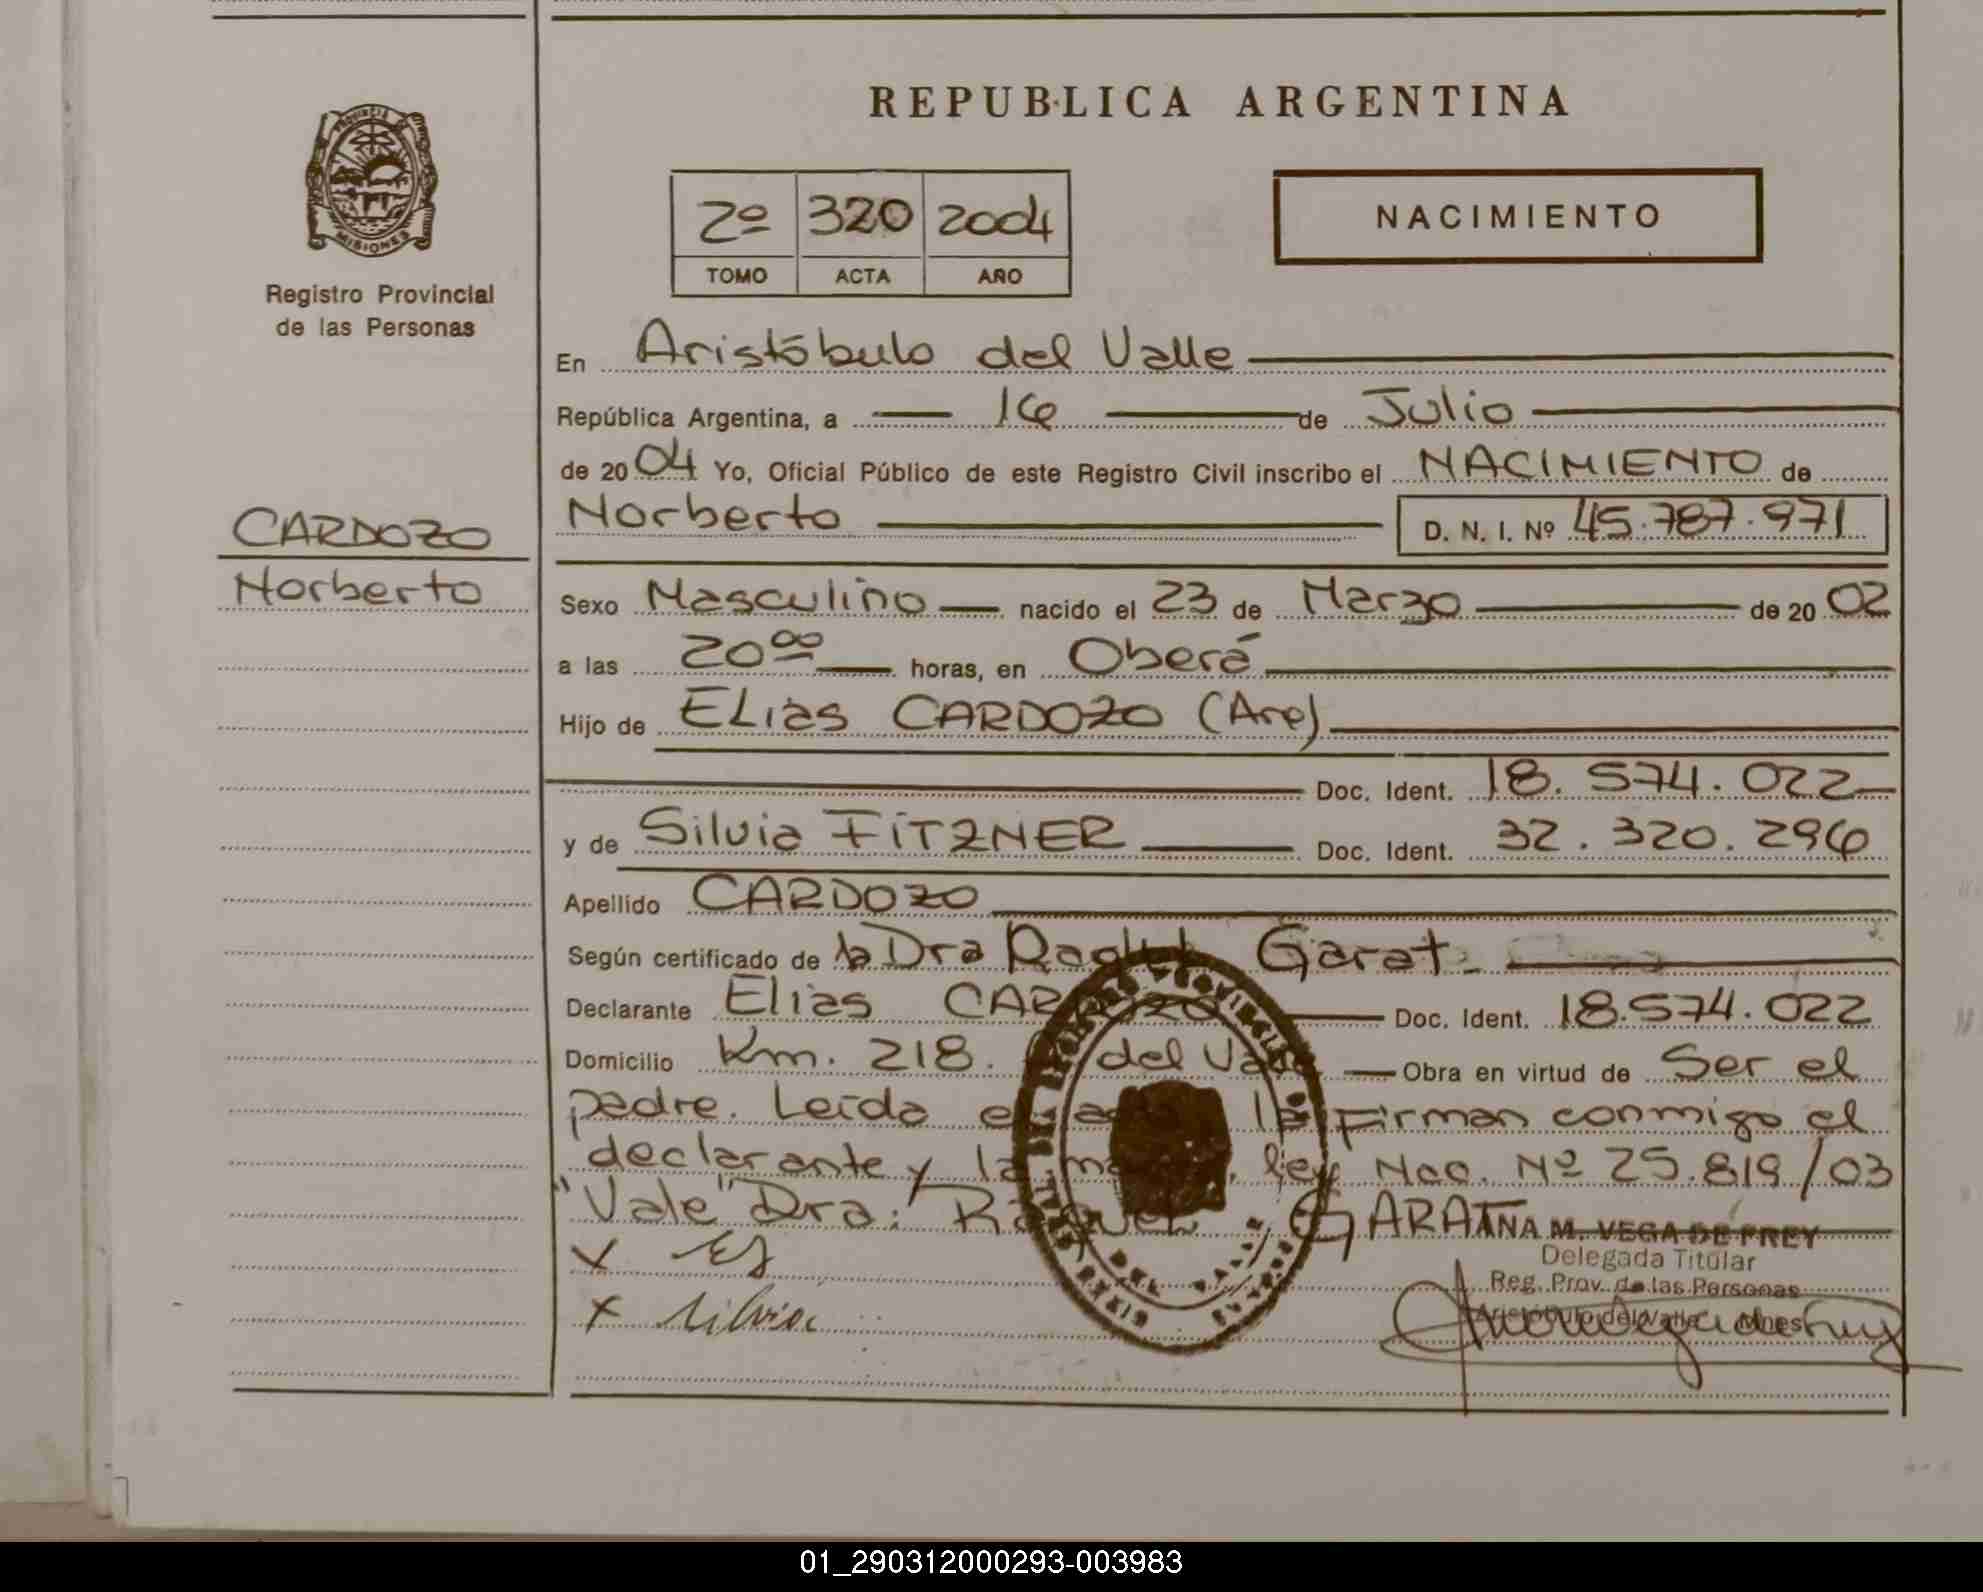 REPUBLICA ARGENTINA
PROVINCIA DE
MISIONES
Registro Provincial
de las Personas
2º 320 2004
TOMO ACTA AÑO
NACIMIENTO
En Aristóbulo del Valle
República Argentina, a 16 de Julio
de 2004 Yo, Oficial Público de este Registro Civil inscribo el NACIMIENTO de
CARDOZO
Norberto
Norberto D. N. I. Nº 45.787.971
Sexo Masculino nacido el 23 de Marzo de 2002
a las 20ºº horas, en Oberá
Hijo de ELias CARDOZO (Arg)
Doc. Ident. 18.574.022
y de Silvia FITZNER Doc. Ident. 32.320.296
Apellido CARDOZO
Según certificado de la Dra Raquel Garat.
Declarante Elias CARDOZO Doc. Ident. 18.574.022
Domicilio Km. 218. del Valle Obra en virtud de Ser el
padre. Leída el acta la Firman conmigo el
declarante y la madre. ley Nac. Nº 25.819/03
"Vale" Dra: Raquel GARAT
ANA M. VEGA DE FREY
Delegada Titular
Reg. Prov. de las Personas
Aristóbulo del Valle Mnes
X
X Silvia
01_290312000293-003983